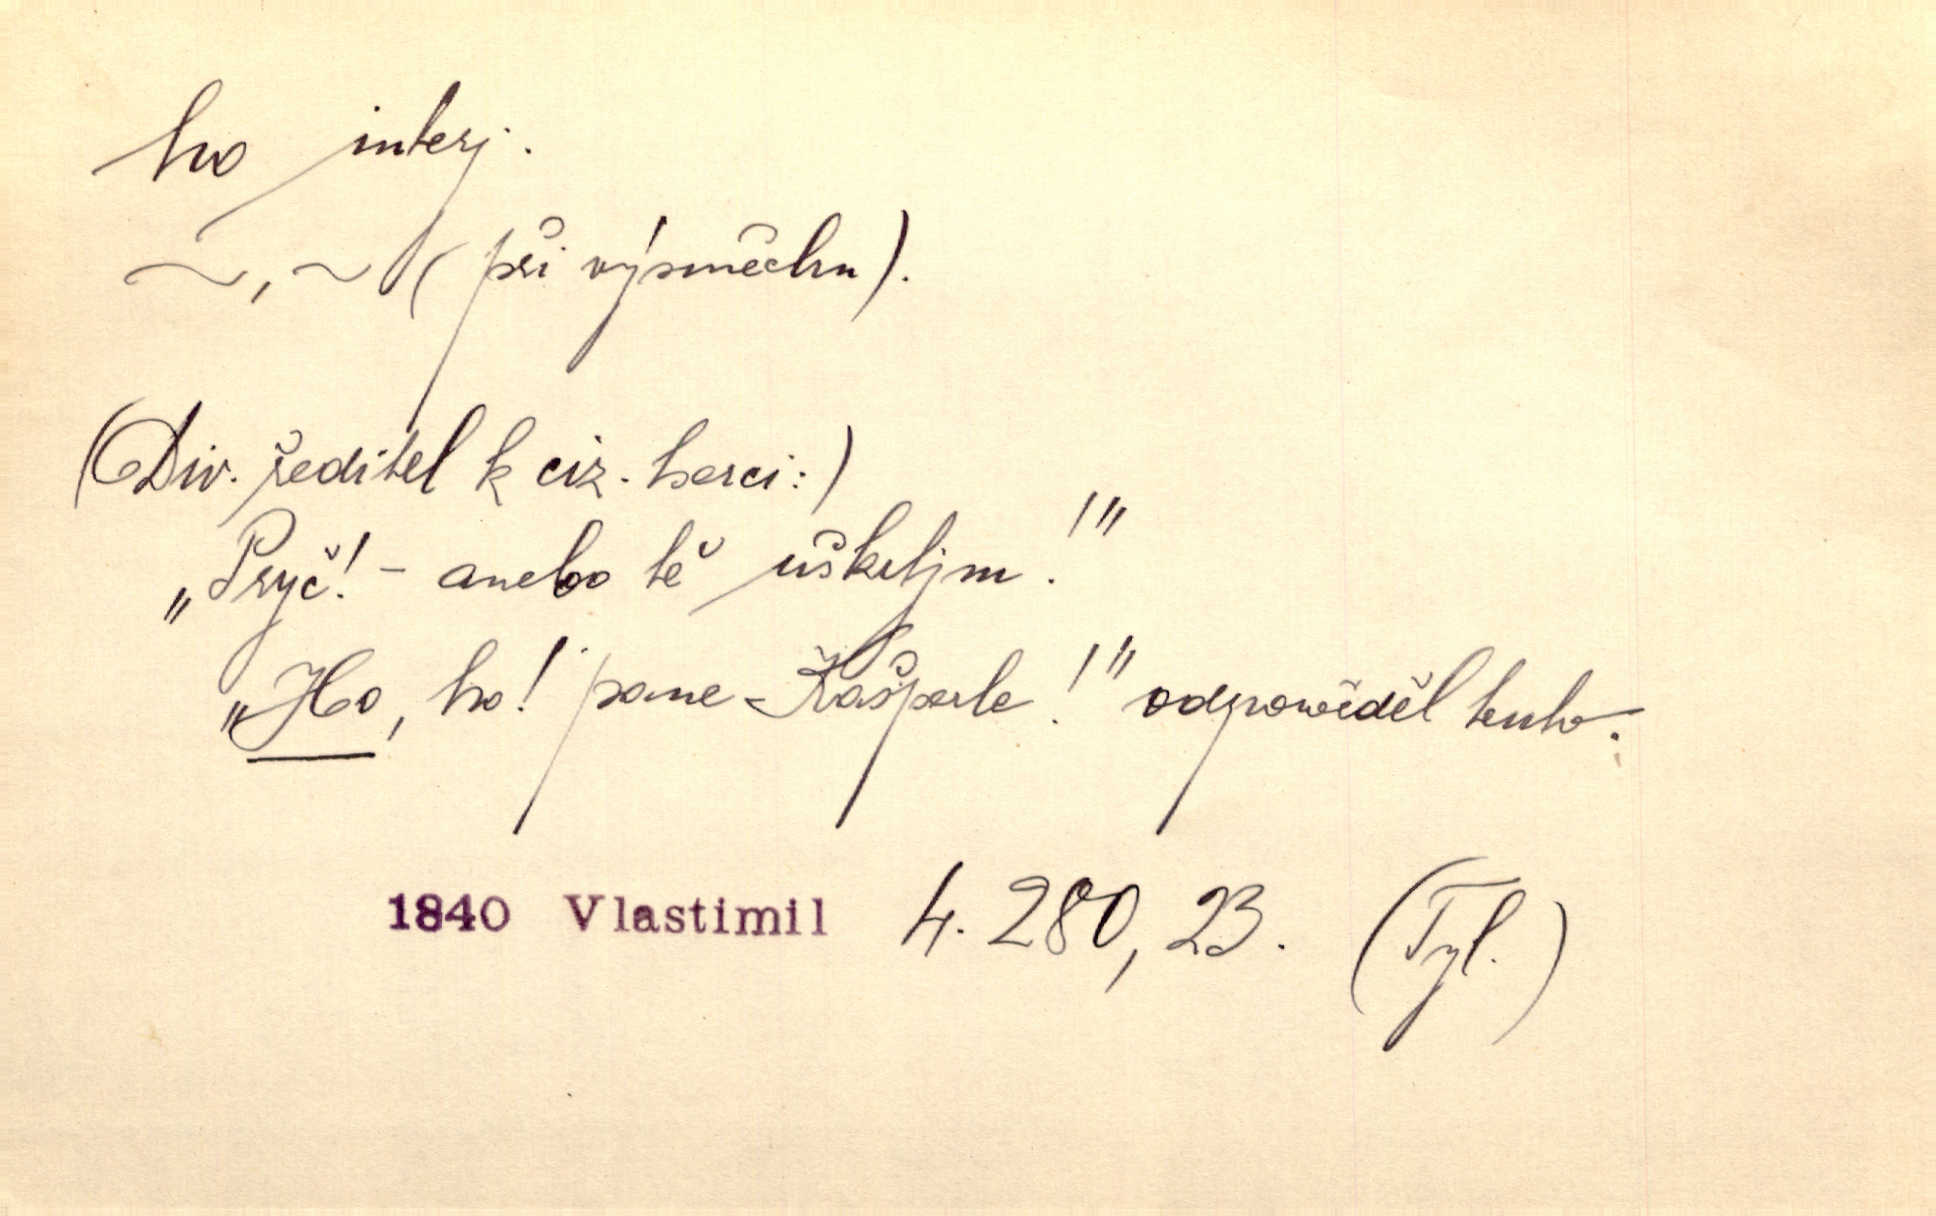 ho interj.
~, ~ (při výsměchu).
(Div. ředitel k ciz. herci:)
„Pryč! - anebo tě uškrtjm!"
„Ho, ho! pane Kašparle!" odpowěděl tento.
1840 Vlastimil 4. 280, 23. (Tyl.)